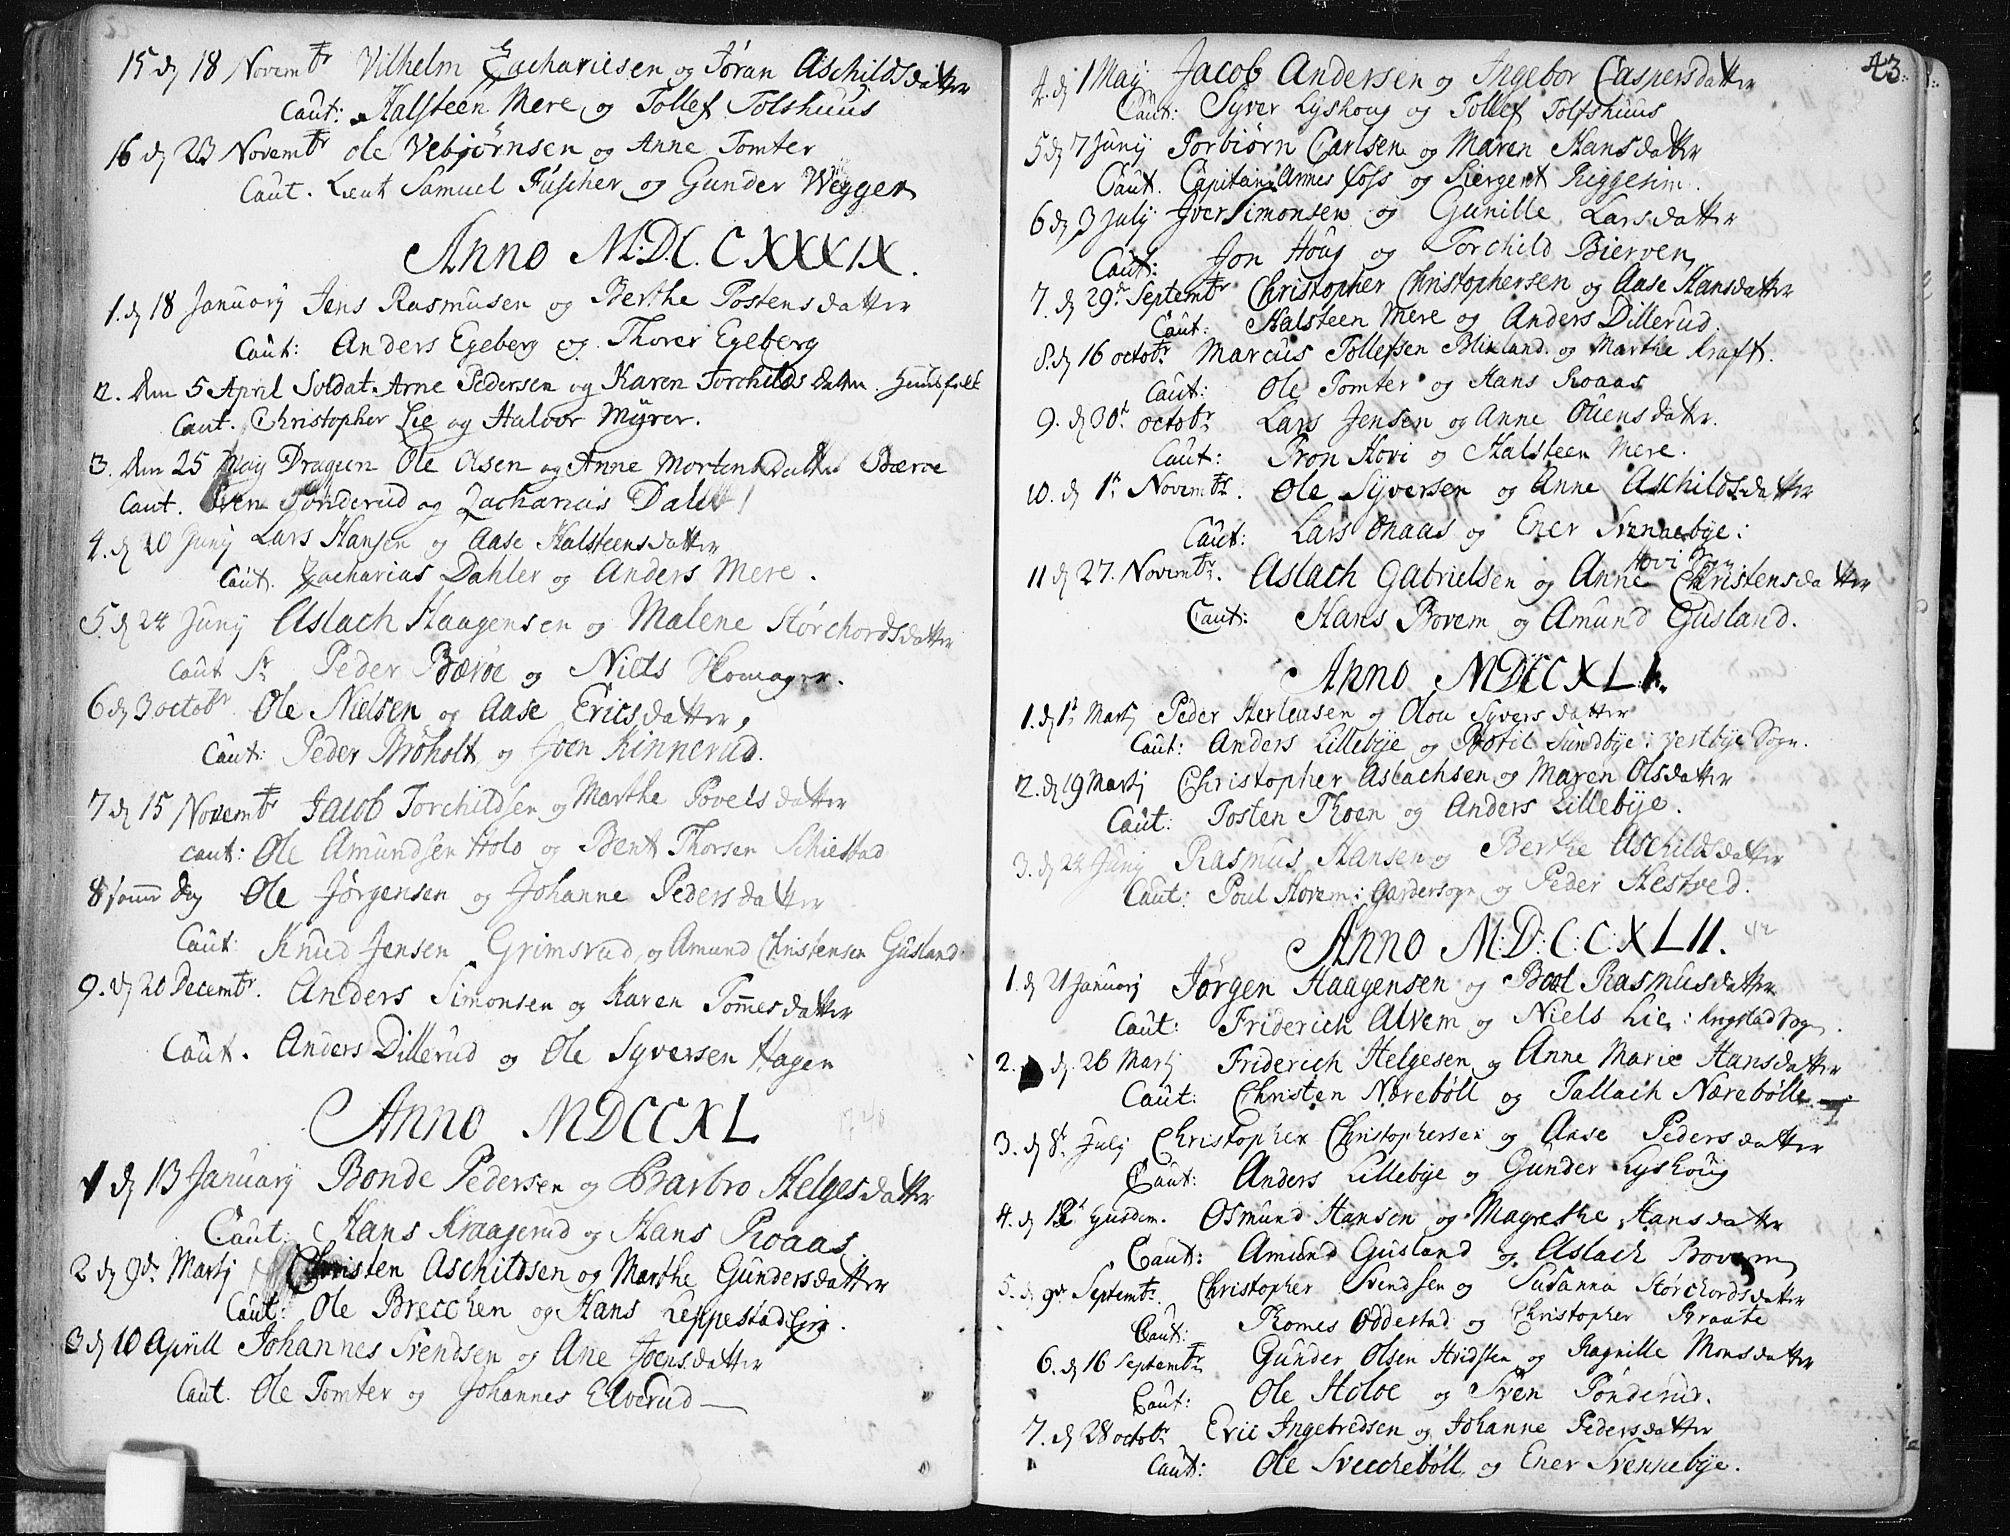 15 dj 18 Novembr Vilhelm Zachariesen og Jöran Aschildsdatter
Caut: Halsteen Mere og Tollef Tolshuus
16 dj 23 Novembr Ole Vebjörnsen og Anne Tomter
Caut. Lieut Samuel Füscher og Gunder Wegger
Anno M.D.C.CXXXIX.
1. dj 18 January Jens Rasmusen og Berthe Postensdatter
Caut: Anders Egeberg og Thorer Egeberg
2. Den 5 April Soldat Arne Pedersen og Karen Torchilds datter
Caut. Christopher Lie og Halvor Myrer.
3. Den 25 May Dragun Ole Olsen og Anne Mortens Datter Bæroe
Caut. Sven Sönderud og Zacharias Dahl
4. dj 20 Junij Lars Hansen og Aase Halsteensdatter
Caut. Zacharias Dahler og Anders Mere.
5. dj 24 Junij Aslach Haagensen og Malene Störchordsdatter
Caut Sr Peder Bæröe og Niels Homager.
6 dj 3 octobr Ole Nielsen og Aase Ericsdatter,
Caut: Peder Bröholt og Joen Kinnerud.
7 dj 15 Novembr Jacob Torchildsen og Marthe Povelsdatter
caut: Ole Amundsen Holo og Bent Thorsen Schiestad
8 samme Dag Ole Jörgensen og Johanne Pedersdatter
Caut: Knud Jensen Grimsrud, og Amund Christensen Gusland
9. dj 20 Decembr. Anders Simonsen og Karen Tommesdatter
Caut. Anders Dillerud og Ole Syversen Hagen
Anno MDCCXL 1740
1 dj 13 January Bonde Pedersen og Barbro Helgesdatter
Caut. Hans Kraagerud og Hans Roaas
2 dj 9de Martj Christen Aschildsen og Marthe Gundersdatter
Caut: Ole Brecchen og Hans Leppestad Eje.
3 dj 10 Aprill Johannes Svendsen og Ane Joensdatter
Caut. Ole Tomter og Johannes Elverud
43.
4. dj 1 May Jacob Andersen og Ingebor Caspersdatter
Caut: Syver Lyshoug og Tollef Tolfshuus
5 dj 7 Junij Torbiörn Carlsen og Maren Hansdatter
Caut. Capitain Annes Coss og Siergent Riggesim.
6 dj 3 July Iver Simonsen og Gunille Larsdatter
Caut: Jon Houg og Torchild Bierven
7. dj 29de Septembr Christopher Christophersen og Aase Hansdatter
Caut: Halsteen Mere og Anders Dillerud.
8. dj 16 octobr Marcus Tollefsen Blixland og Marthe Kraft.
Caut: Ole Tomter og Hans Roaas
9. dj 30t octobr Lars Jensen og Anne Ouensdatter.
Caut: Tron Hovi og Halsteen Mere.
10. dj 1t Novembr. Ole Syversen og Anne Aschildsdatter
Caut: Lars Onaas og Ener Svennebye:
Hovi Sogn
11 dj 27. Novembr. Aslach Gabrielsen og Anne Christensdatter
Caut: Hans Bovem og Amund Gusland.
Anno MDCCXLI.
1. dj 1t Martj Peder Herleusen og Olou Syversdatter
Caut: Anders Lillebye og Botil Sundbye: Vestbye Sogn.
2. dj 19 Martj Christopher Aslachsen og Maren Olsdatter
Caut: Tosten Thoen og Anders Lillebye.
3. dj 24 Junij Rasmus Hansen og Berthe Aschildsdatter
Caut: Poul Hovem: Gardersogn og Peder Hestved.
Anno M:D:C:C:XLII. 42
1. dj 21 January Jörgen Haagensen og Boel Rasmusdatter
Caut: Friderich Alvem og Niels Lie: Kragstad Sogn.
2. dj. 26 Martj Friderich Helgesen og Anne Marie Hansdatter
Caut: Christen Næreböll og Tallach Nærebölle
3. dj 8t July Christopher Christophersen og Aase Pedersdatter
Caut: Anders Lillebye og Gunder Lyshoug
4. dj 12t Osmund Hansen og Magrethe Hansdatter
Caut: Amund Gusland og Aslach Bovem
5. dj 9de Septembr. Christopher Svendsen og Susanna Störchordsdatter
Caut: Thomes Oddestad og Christopher Braate
6. dj 16 Septembr Gunder Olsen Hvidsten og Ragnille Monsdatter
Caut: Ole Holoe og Sven Sönderud.
7. dj 28 octobr Eric Ingebredsen og Johanne Pedersdatter
Caut: Ole Sveccheböll og Ener Svennebye.